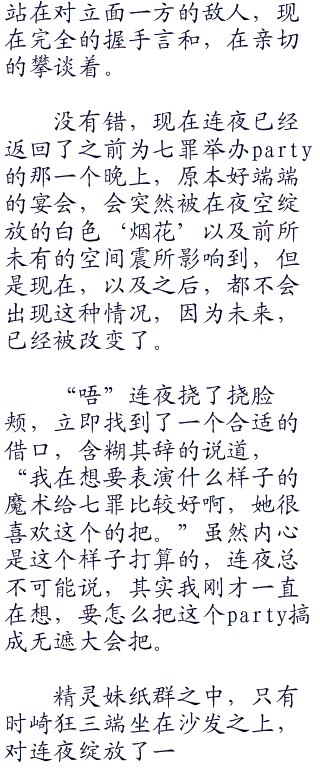 站在对立面一方的敌人，现
在完全的握手言和，在亲切
的攀谈着。
没有错，现在连夜已经
返回了之前为七罪举办party
的那一个晚上，原本好端端
的宴会，会突然被在夜空绽
放的白色‘烟花’以及前所
未有的空间震所影响到，但
是现在，以及之后，都不会
出现这种情况，因为未来，
已经被改变了。
“唔”连夜挠了挠脸
颊，立即找到了一个合适的
借口，含糊其辞的说道，
“我在想要表演什么样子的
魔术给七罪比较好啊，她很
喜欢这个的把。”虽然内心
是这个样子打算的，连夜总
不可能说，其实我刚才一直
在想，要怎么把这个party搞
成无遮大会把。
精灵妹纸群之中，只有
时崎狂三端坐在沙发之上，
对连夜绽放了一